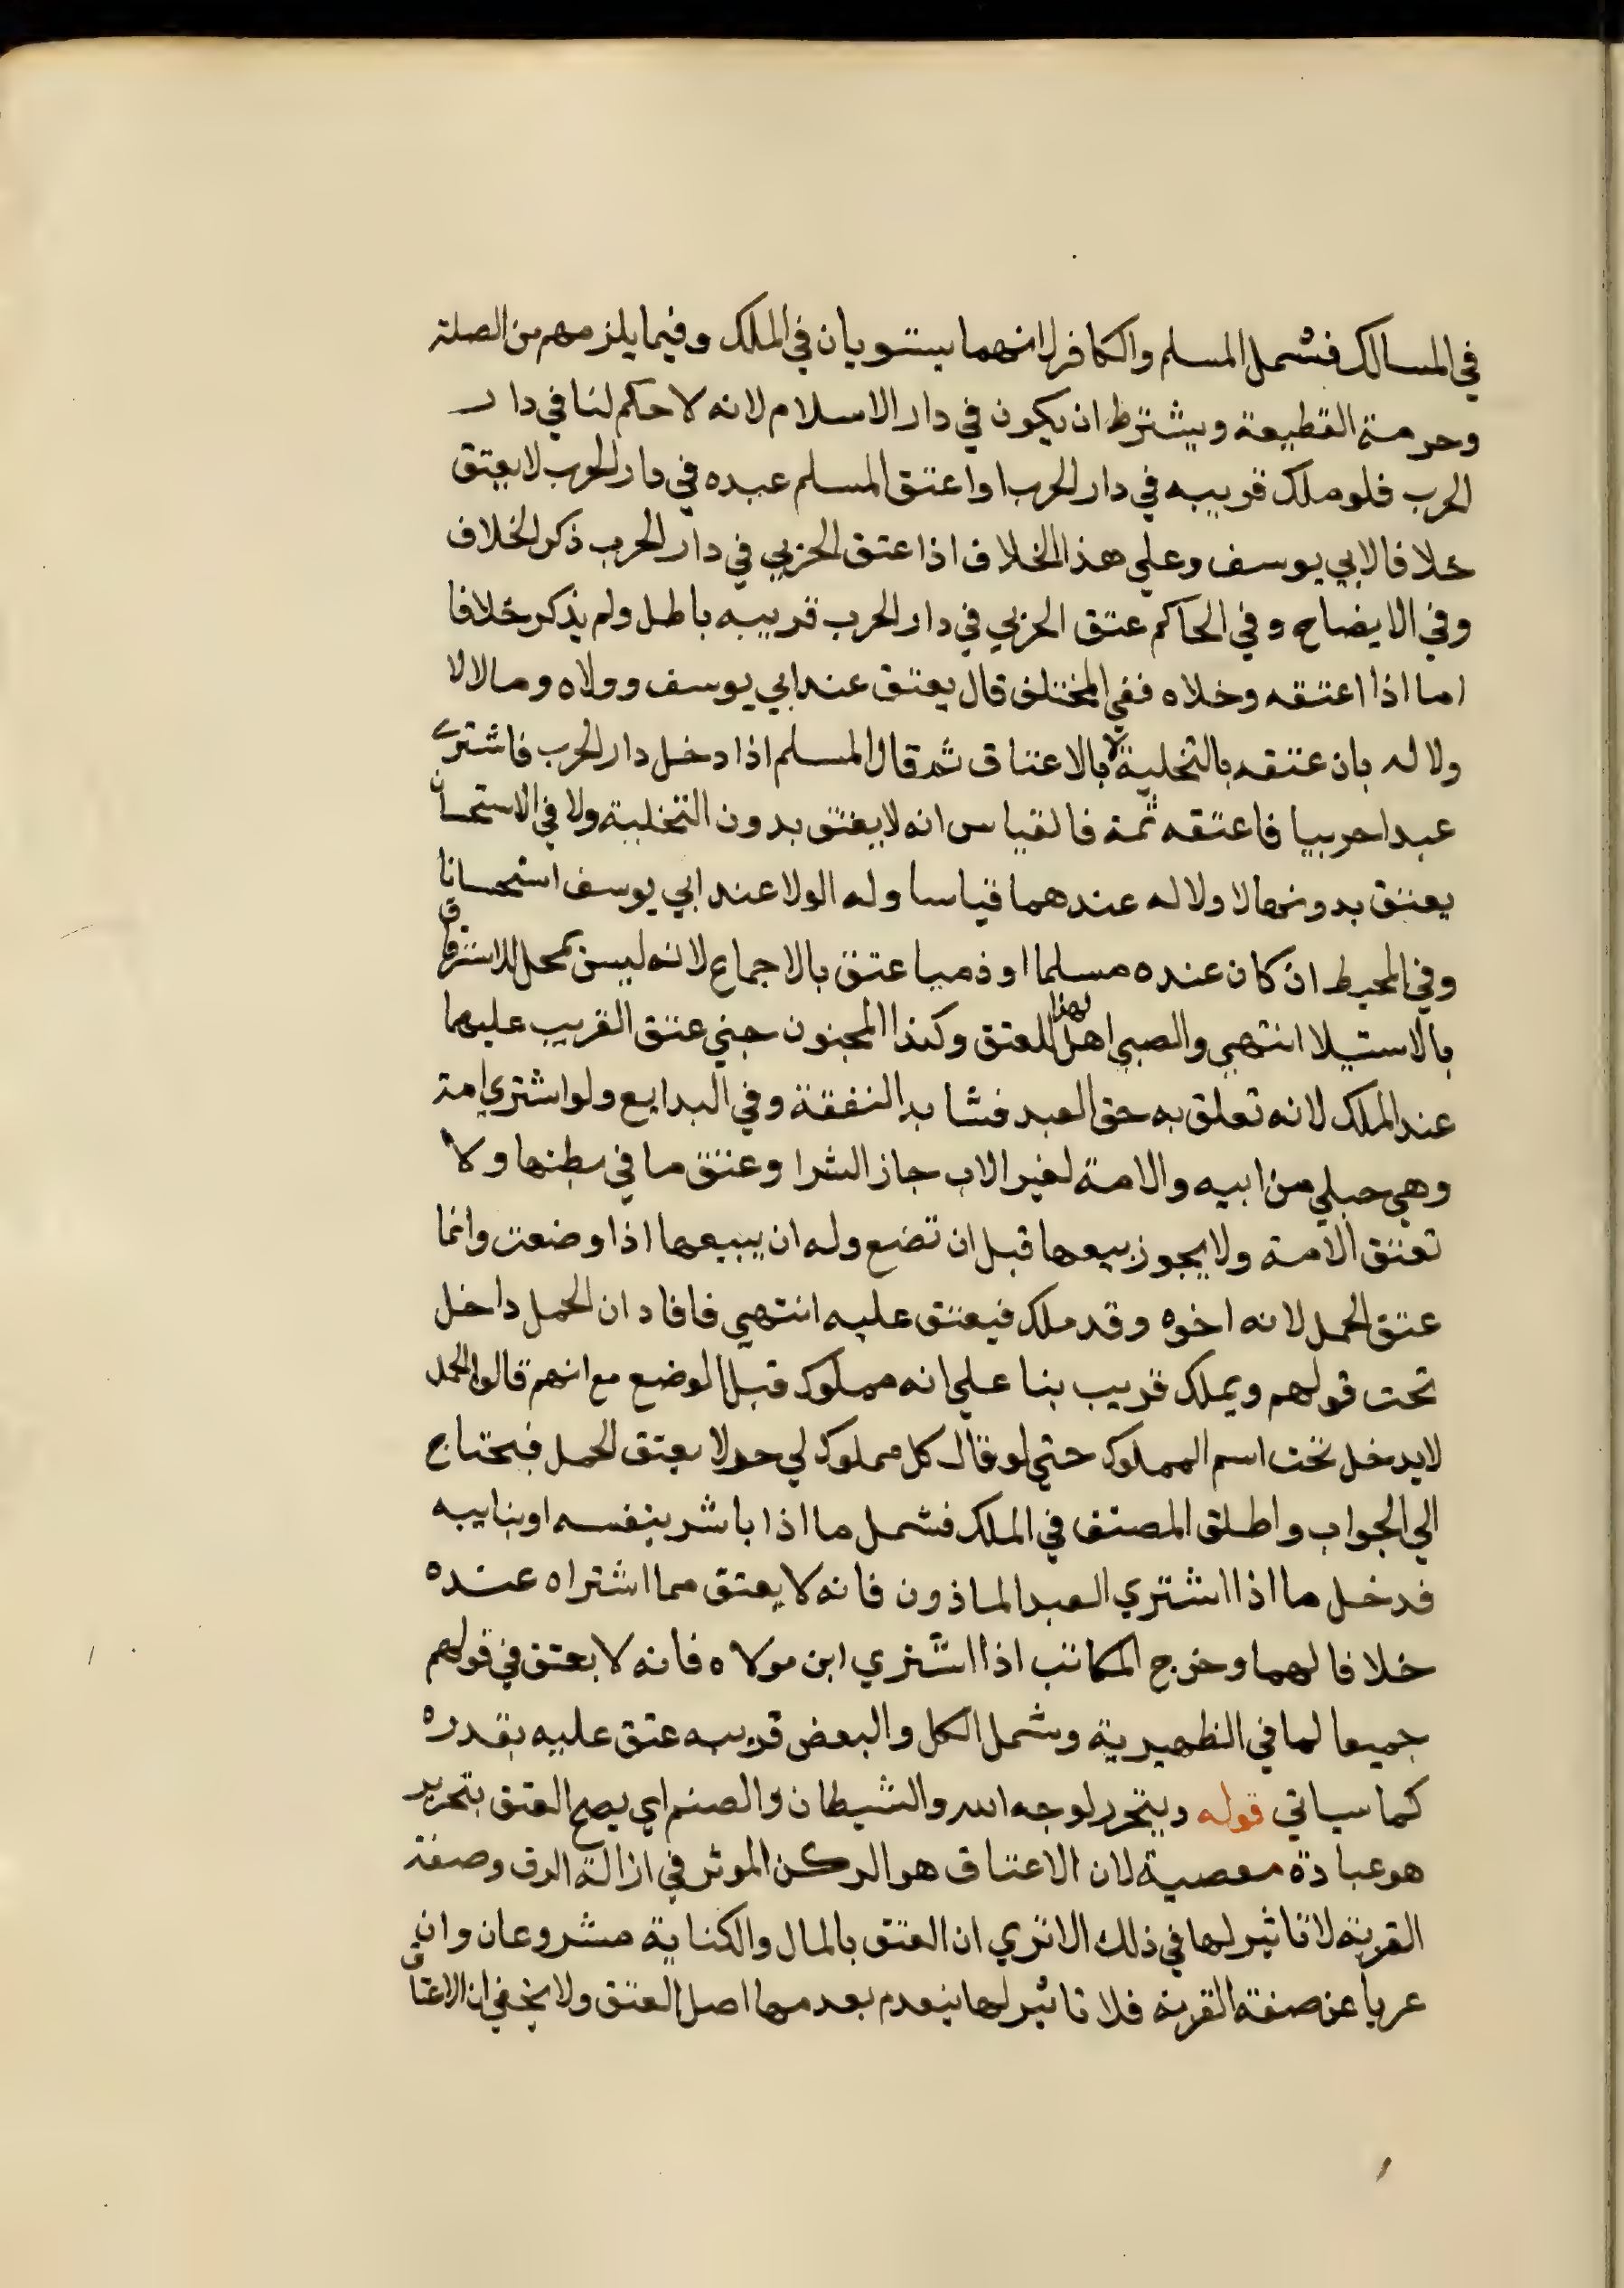 في المسالك فشمل المسلم والكافر لانهما يستويان في الملك وفيما يلزمهم من الصلة
وحرمة القطيعة ويشترط ان يكون في دار الاسلام لانه لا حكم لنا في دار
الحرب فلو ملك قريبه في دار الحرب او اعتق المسلم عبده في دار الحرب لا يعتق
خلافا لابي يوسف وعلي هذا الخلاف اذا عتق الحربي في دار الحرب ذكر الخلاف
وفي الايضاح وفي الحاكم عتق الحربي في دار الحرب قريبه باطل ولم يذكر خلافا
اما اذا اعتقه وخلاه ففي المختلف قال يعتق عند ابي يوسف وولاه ومالا لا
ولا له بان عتقه بالتخلية لا بالاعتاق ثم قال المسلم اذا دخل دار الحرب فاشتري
عبدا حربيا فاعتقه ثمة فالقياس انه لا يعتق بدون التخلية ولا في الاستحسان
يعتق بدونها لا ولا له عندهما قياسا وله الولا عند ابي يوسف استحسانا
وفي المحيط ان كان عنده مسلما او ذميا عتق بالاجماع لانه ليس بمحل للاسترقاق
بالاستيلا انتهي والصبي اهل لهذا للعتق وكذا المجنون جني عتق القريب عليهما
عند الملك لانه تعلق به حق العبد فشابه النفقة وفي البدايع ولو اشتري امة
وهي حبلي من ابيه والامة لغير الاب جاز الشرا وعتق ما في بطنها ولا
تعتق الامة ولا يجوز بيعها قبل ان تضع وله ان يبيعها اذا وضعت وانما
عتق الحمل لانه اخوه وقد ملك فيعتق عليه انتهي فافاد ان الحمل داخل
تحت قولهم ويملك قريب بنا علي انه مملوك قبل الوضع مع انهم قالوا الحمل
لا يدخل تحت اسم المملوك حتي لو قال كل مملوك لي حر لا يعتق الحمل فيحتاج
الي الجواب واطلق المصنف في الملك فشمل ما اذا باشر بنفسه او بنايبه
فدخل ما اذا اشتري العبد الماذون فانه لا يعتق مما اشتراه عنده
خلافا لهما وخرج المكاتب اذا اشتري ابن مولاه فانه لا يعتق في قولهم
جميعا لما في الظهيرية وشمل الكل والبعض قريبه عتق عليه بقدره
كما سياتي قوله ويتحرر لوجه الله والشيطان والصنم اي يصح العتق بتحرير
هو عبادة معصية لان الاعتاق هو الركن الموثر في ازالة الرق وصفة
القربة لا تاثير لها في ذلك الا تري ان العتق بالمال والكناية مشروعان وان
عريا عن صفة القربة فلا تاثير لها ينعدم بعدمها اصل العتق ولا يخفي ان الاعتاق